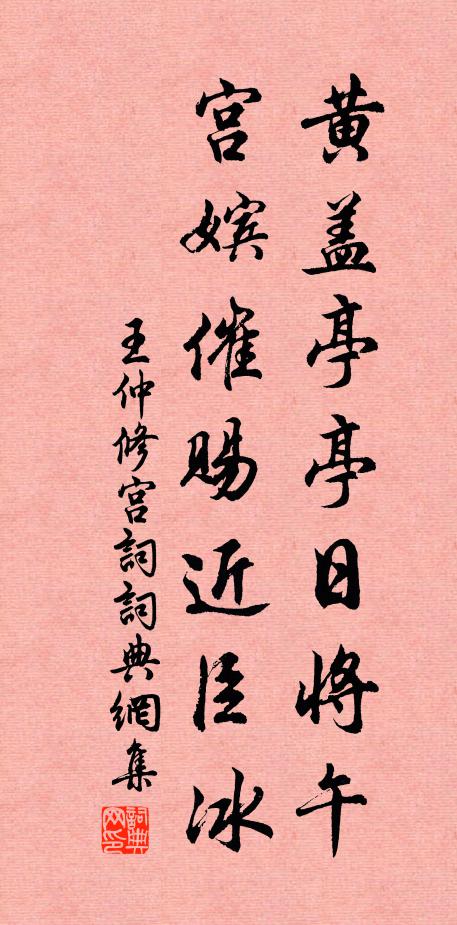 黄盖亭亭日将午
宫嫔催赐近臣冰
王仲修宫詞詞典網集
詞典网印